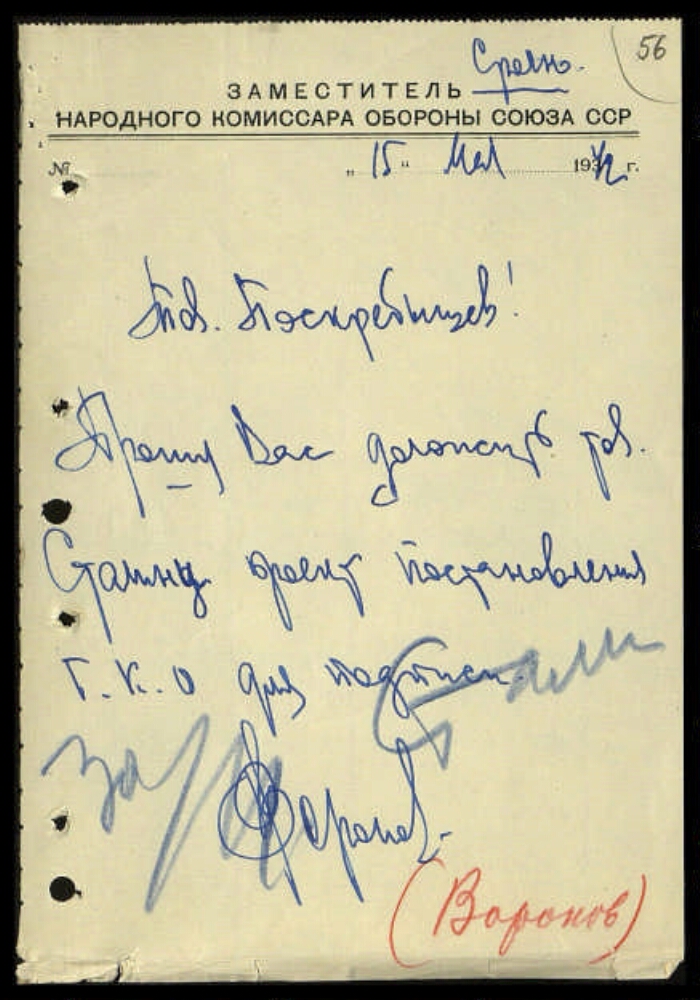 56
Срочно.
ЗАМЕСТИТЕЛЬ
НАРОДНОГО КОМИССАРА ОБОРОНЫ СОЮЗА ССР
№ „15“ Мая 1942 г.
Тов. Поскребышев!
Прошу Вас доложить тов.
Сталину проект постановления
Г.К.О для подписи.
За И Сталин
Воронов
(Воронов)